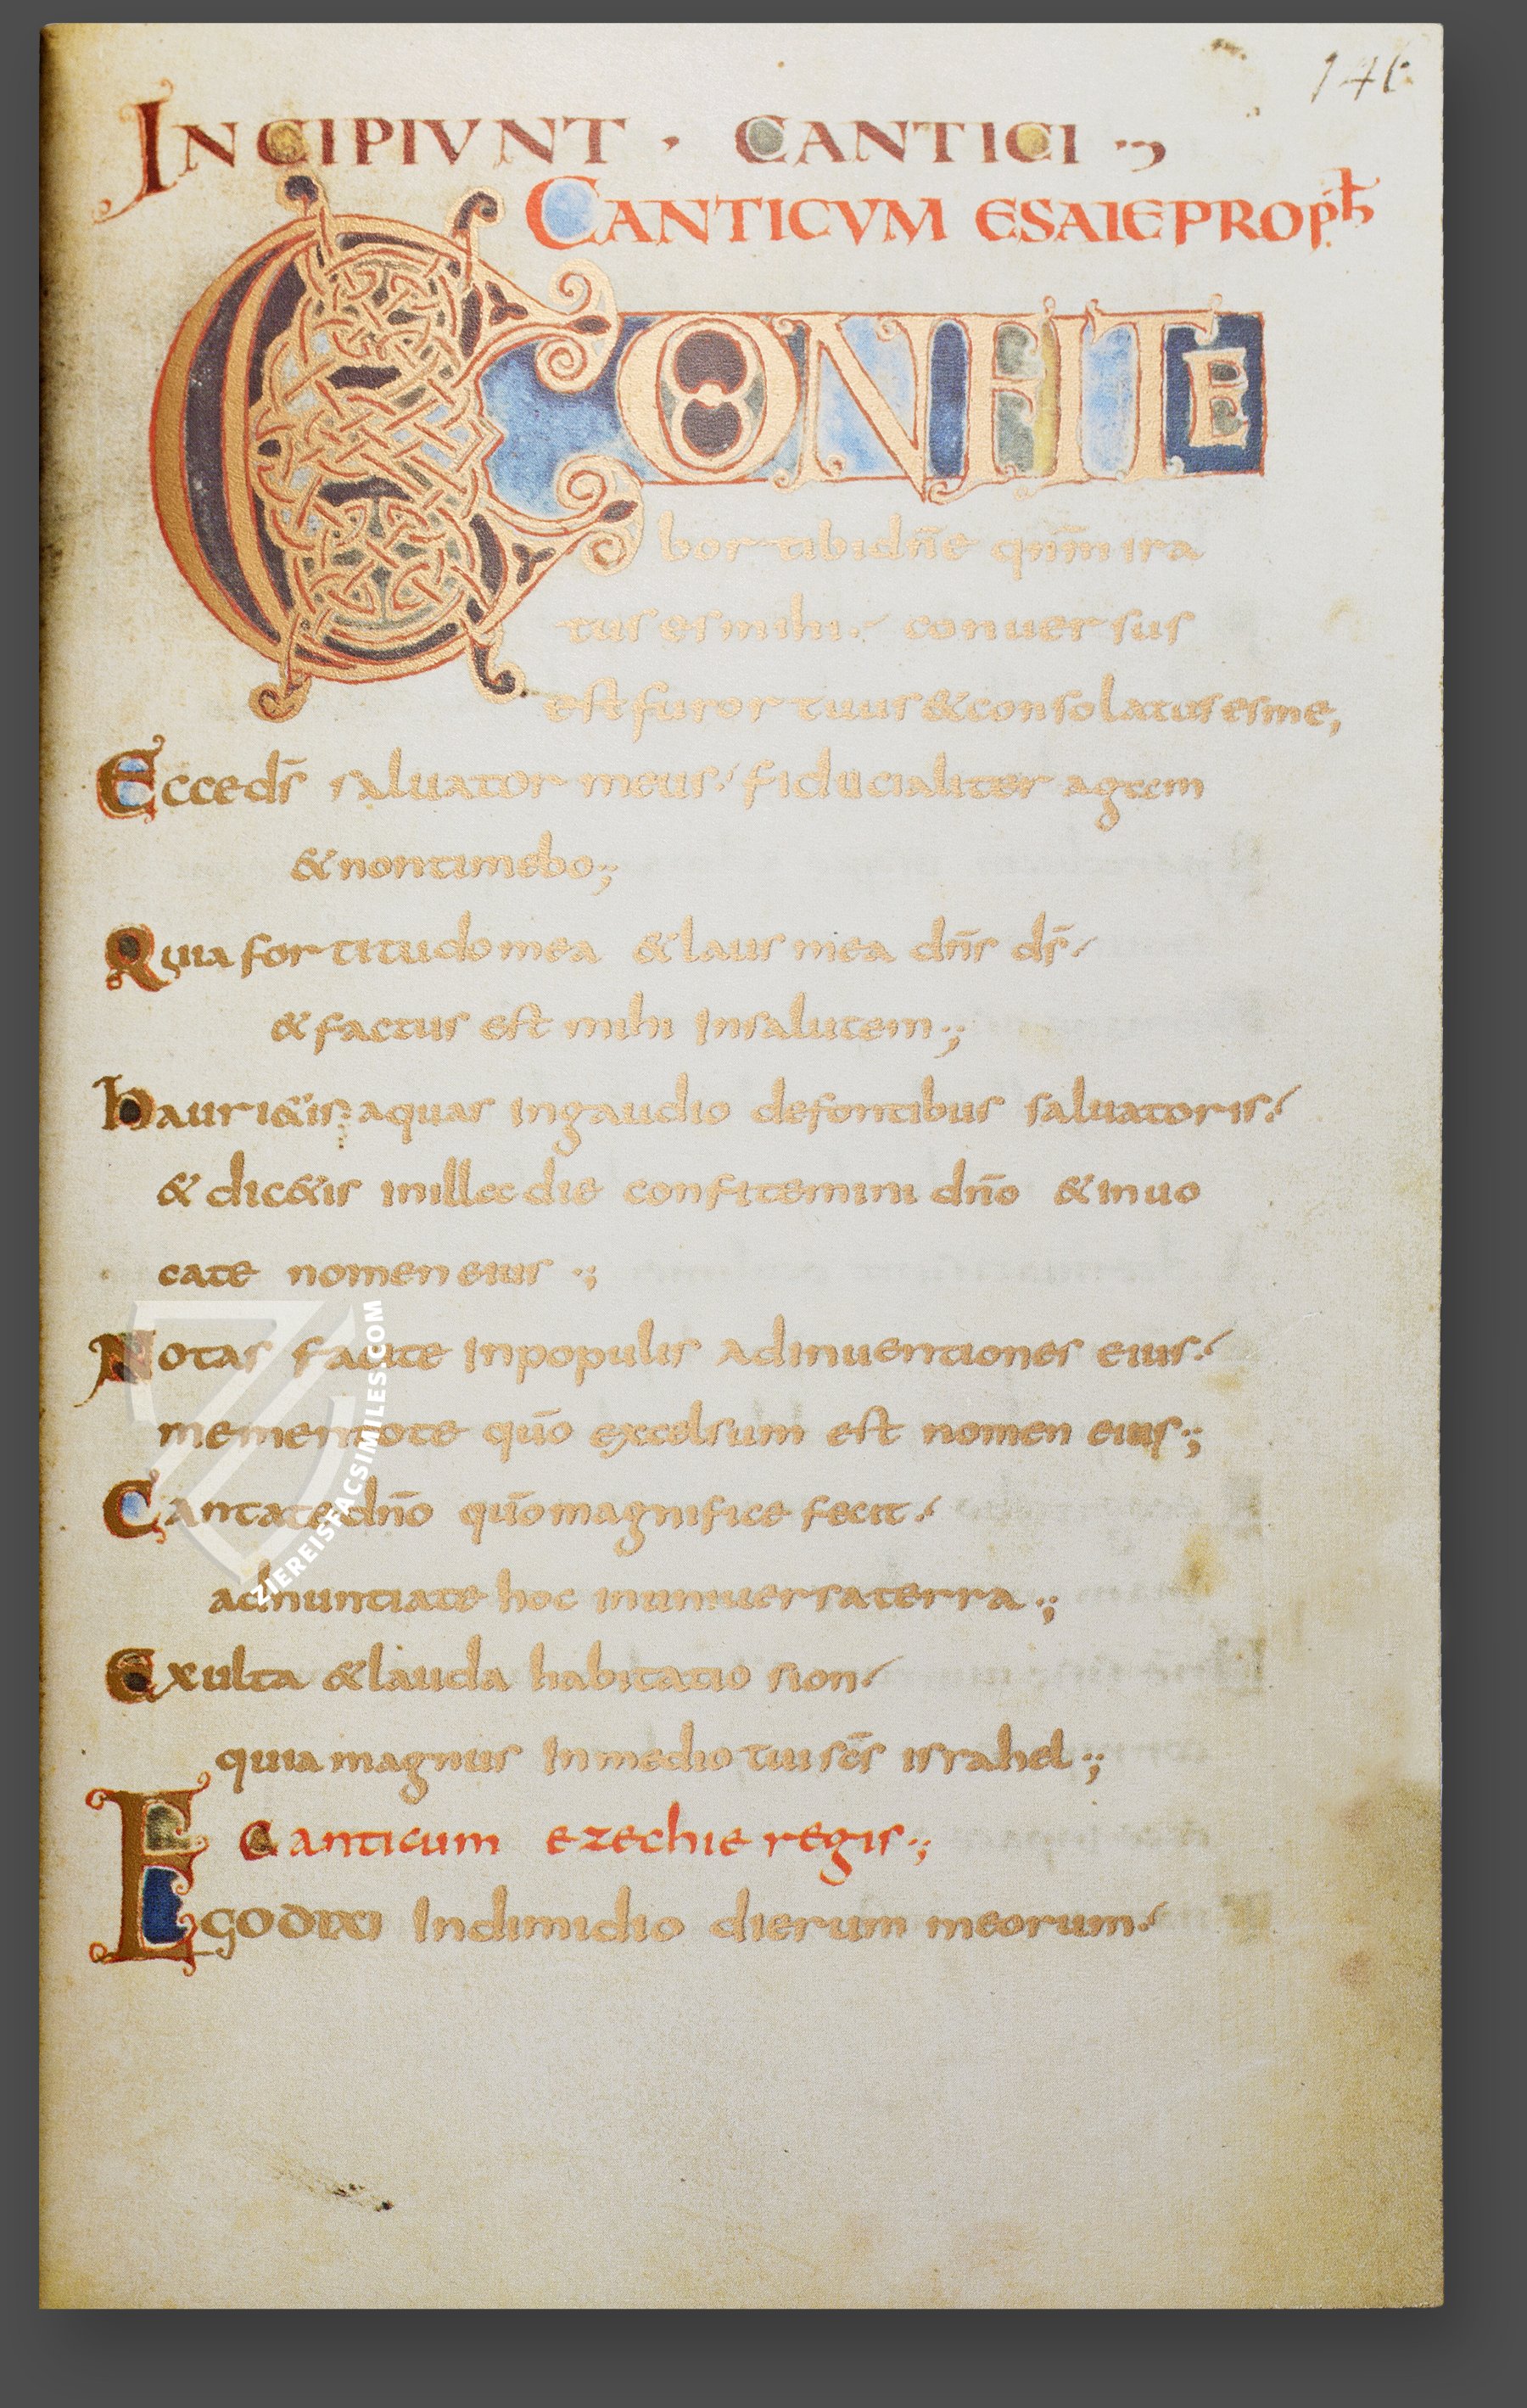 146
INCIPIVNT · CANTICI ·,,
CANTICVM ESAIE PROPħ
CONFITE
bor tibi dñe qm̄ ira
tus es mihi ./ conuersus
est furor tuus & consolatus es me,
Ecce ds̄ saluator meus ./ fiducialiter agam
& non timebo ;
Quia fortitudo mea & laus mea dn̄s ds̄ ./
& factus est mihi In salutem .;
Hauri&is aquas In gaudio de fontibus saluatoris ./
& dic&is in illa die confitemini dn̄o & inuo
cate nomen eius .;
Notas facite In populis adinuentiones eius ./
mementote qūo excelsum est nomen eius .;
Cantate dn̄o qūo magnifice fecit ./
adnuntiate hoc in uniuersa terra .;
Exulta & lauda habitatio sion ./
quia magnus In medio tui sc̄s israhel .;
Canticum ezechie regis .;
EGO DIXI In dimidio dierum meorum ./
ZIEREISFACSIMILES.COM